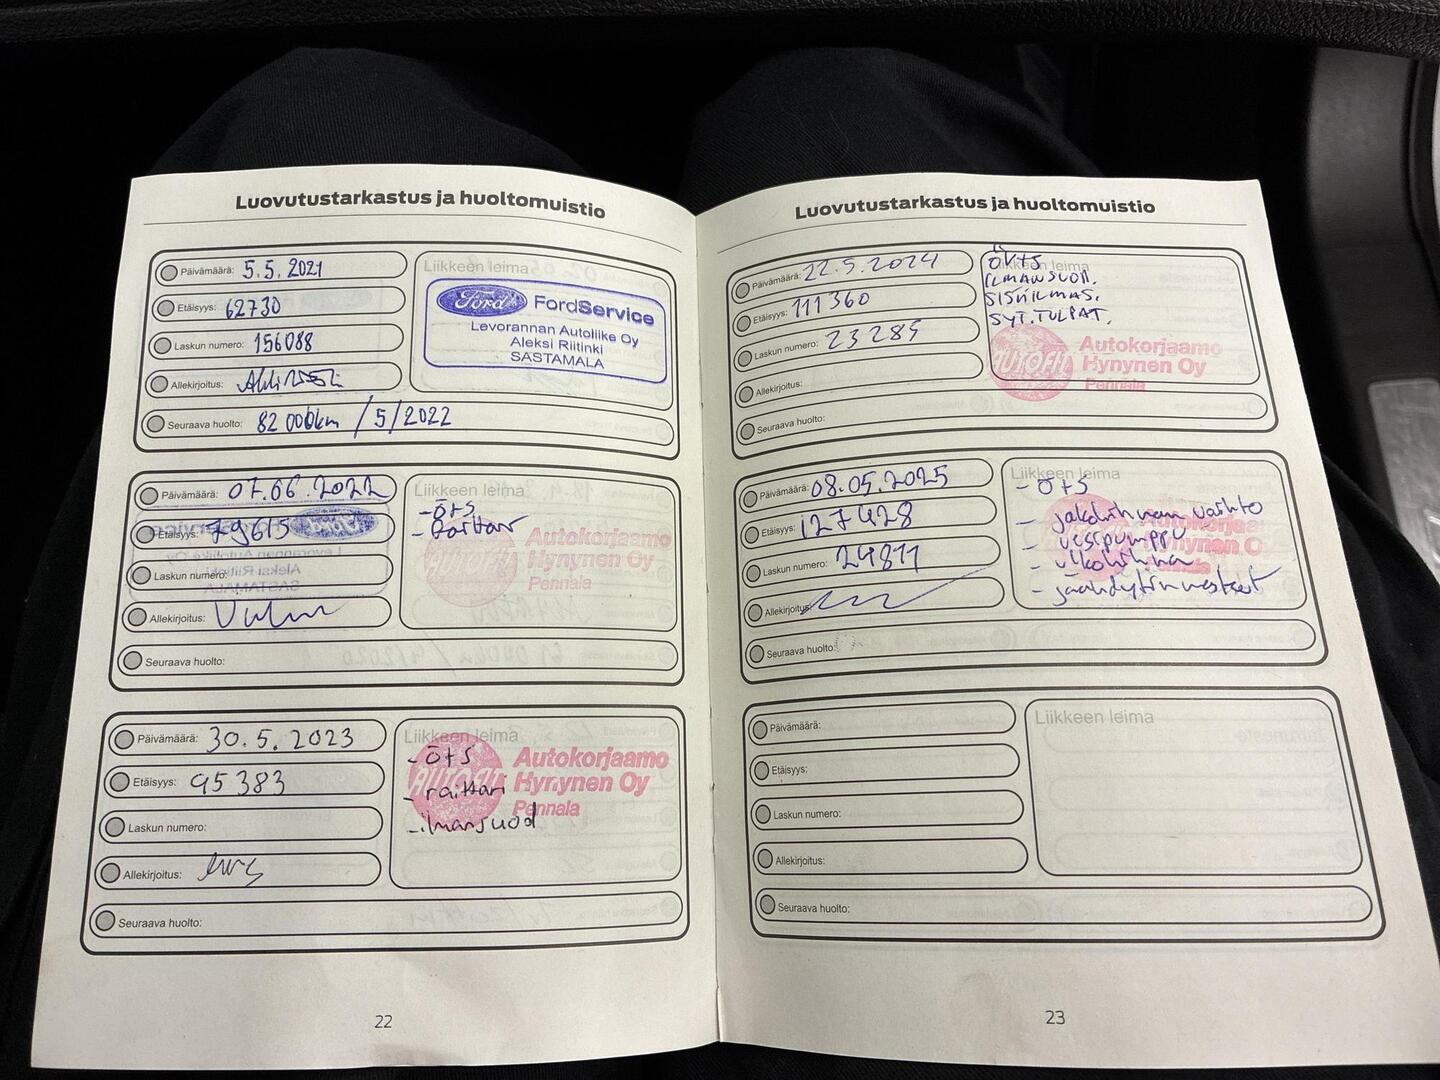 Luovutustarkastus ja huoltomuistio
Päivämäärä: 5.5.2021
Etäisyys: 62730
Laskun numero: 156088
Allekirjoitus:
Seuraava huolto: 82 000km / 5/2022
Liikkeen leima
Ford FordService
Levorannan Autoliike Oy
Aleksi Riitinki
SASTAMALA
Päivämäärä: 07.06.2022
Etäisyys: 79615
Laskun numero:
Allekirjoitus:
Seuraava huolto:
Liikkeen leima
- öts
- raittari
Autokorjaamo
Hynynen Oy
Pennala
Päivämäärä: 30.5.2023
Etäisyys: 95383
Laskun numero:
Allekirjoitus:
Seuraava huolto:
Liikkeen leima
- öts
- raittari
- ilmansuod
AUTOFIT
Autokorjaamo
Hynynen Oy
Pennala
22
Luovutustarkastus ja huoltomuistio
Päivämäärä: 22.5.2024
Etäisyys: 111360
Laskun numero: 23285
Allekirjoitus:
Seuraava huolto:
Liikkeen leima
ÖVTS
ILMANSUOD.
SISÄILMAS.
SYT.TULPAT.
AUTOFIT
Autokorjaamo
Hynynen Oy
Pennala
Päivämäärä: 08.05.2025
Etäisyys: 127428
Laskun numero: 24811
Allekirjoitus:
Seuraava huolto:
Liikkeen leima
- öts
- jakohihnan vaihto
- vesipumppu
- ulkohihna
- jäähdytinnesteet
Autokorjaa
Hynynen O
Pennala
Päivämäärä:
Etäisyys:
Laskun numero:
Allekirjoitus:
Seuraava huolto:
Liikkeen leima
23